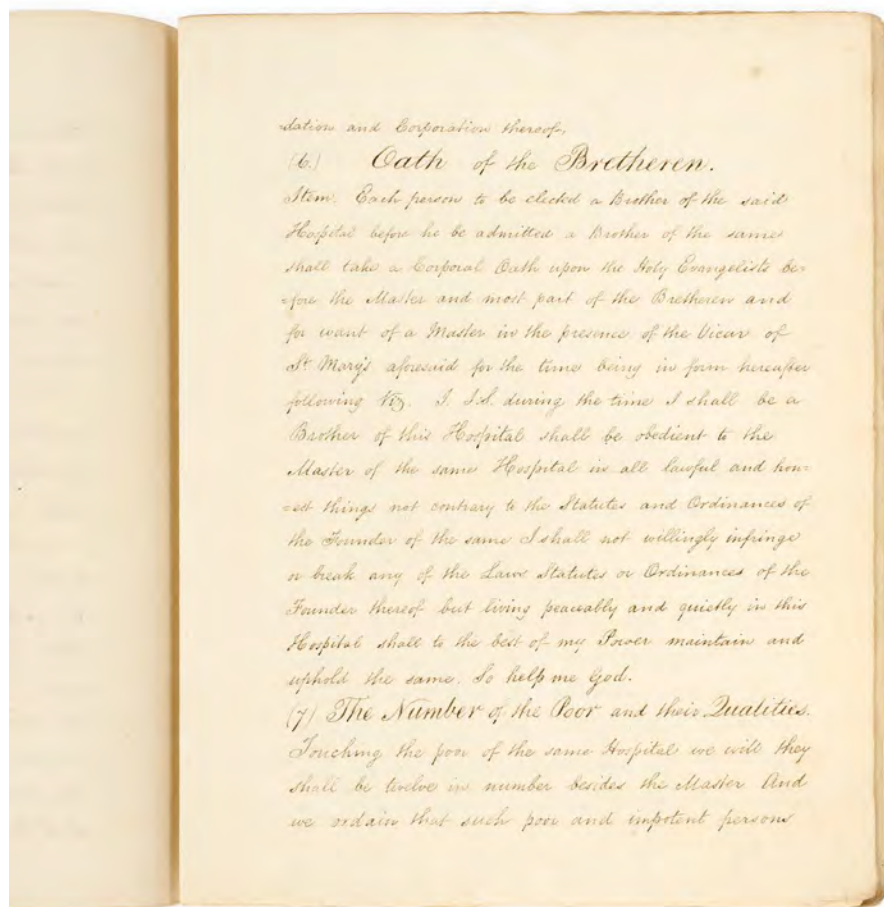 =dation and Corporation thereof.
(6.) Oath of the Bretheren.
Item. Each person to be elected a Brother of the said
Hospital before he be admitted a Brother of the same
shall take a Corporal Oath upon the Holy Evangelists be=
=fore the Master and most part of the Bretheren and
for want of a Master in the presence of the Vicar of
St. Mary's aforesaid for the time being in form hereafter
following Viz. I. I.S. during the time I shall be a
Brother of this Hospital shall be obedient to the
Master of the same Hospital in all lawful and hon=
=est things not contrary to the Statutes and Ordinances of
the Founder of the same I shall not willingly infringe
or break any of the Laws Statutes or Ordinances of the
Founder thereof but living peaceably and quietly in this
Hospital shall to the best of my Power maintain and
uphold the same. So help me God.
(7) The Number of the Poor and their Qualities.
Touching the poor of the same Hospital we will they
shall be twelve in number besides the Master And
we ordain that such poor and impotent persons